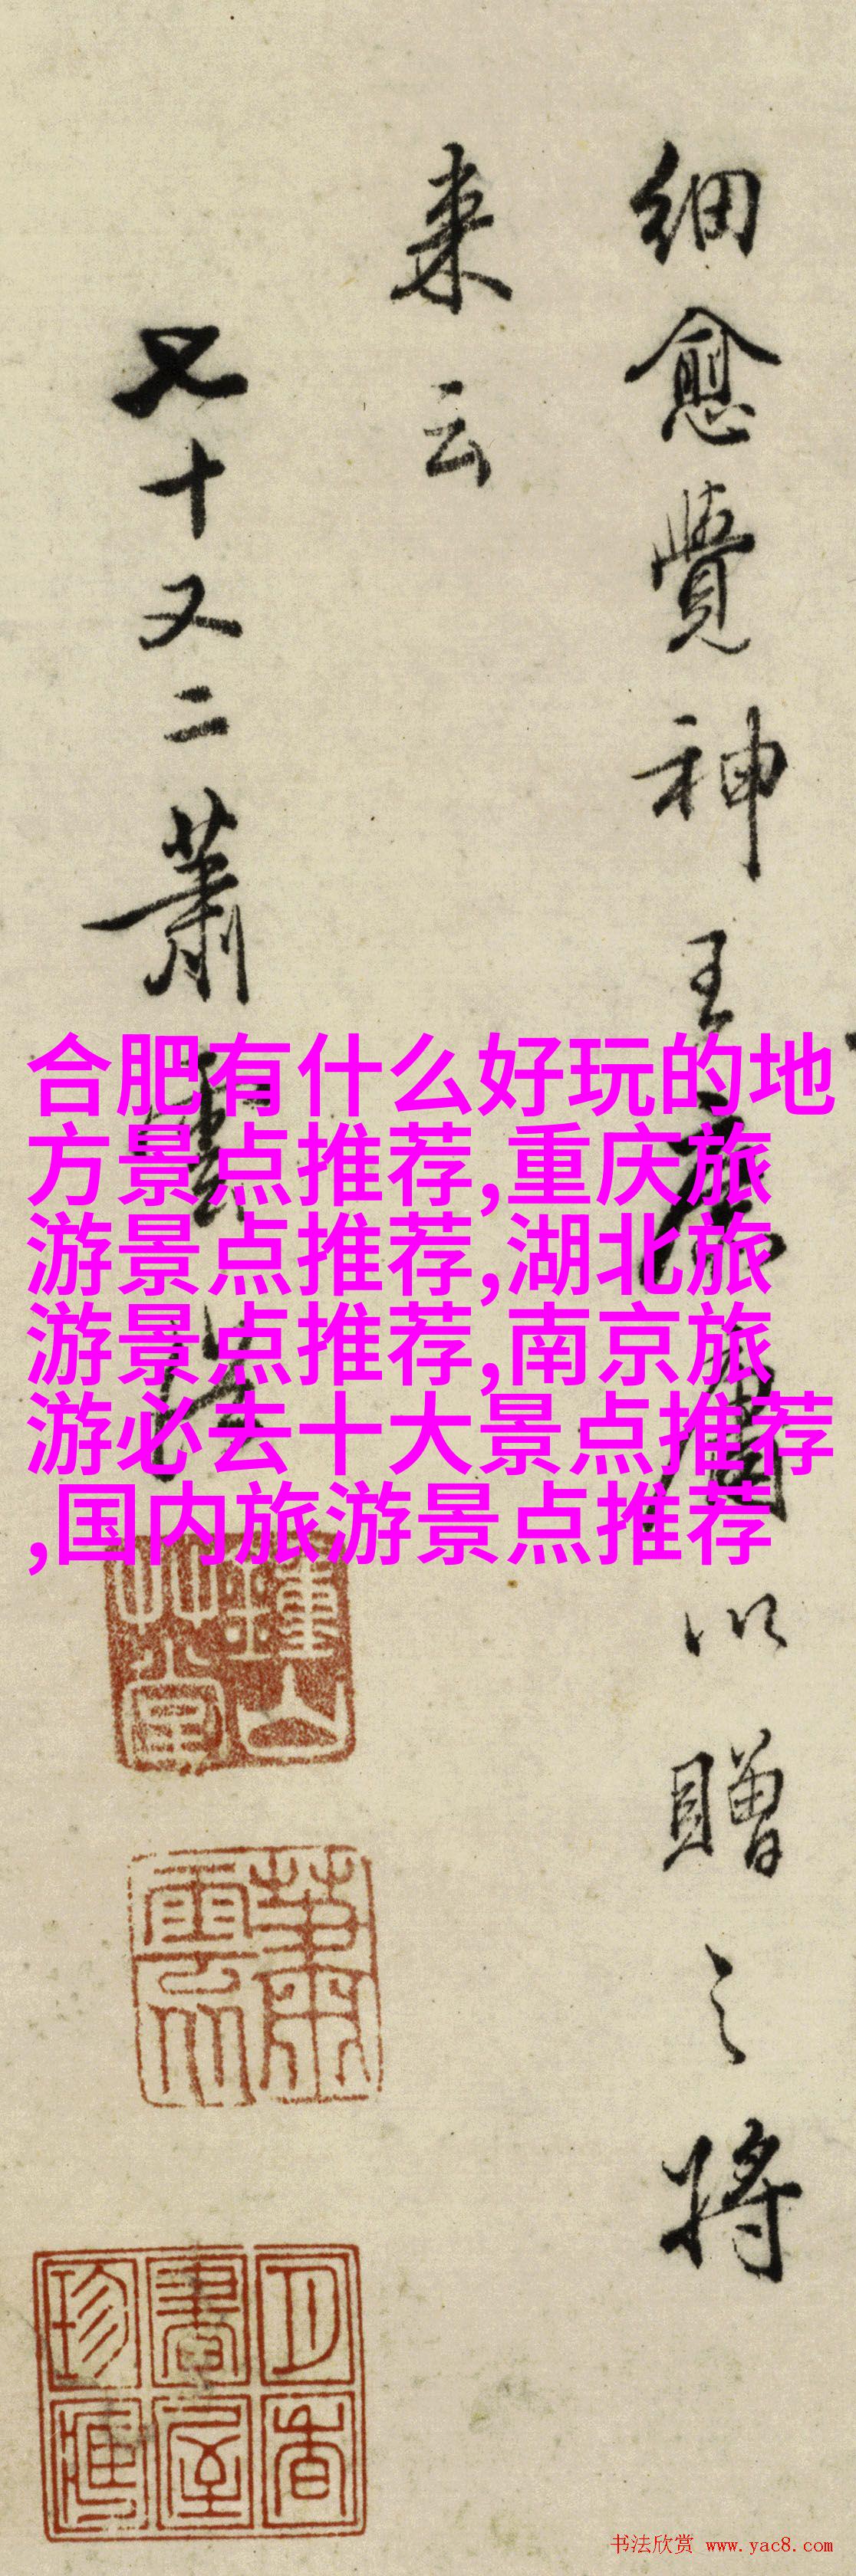 细愈覺神王
以贈之将
来云
又十又二蕭雲
合肥有什么好玩的地
方景点推荐,重庆旅
游景点推荐,湖北旅
游景点推荐,南京旅
游必去十大景点推荐
,国内旅游景点推荐
鍾山
艸堂
蕭
雲從
書屋
珍
书法欣赏 www.yac8.com